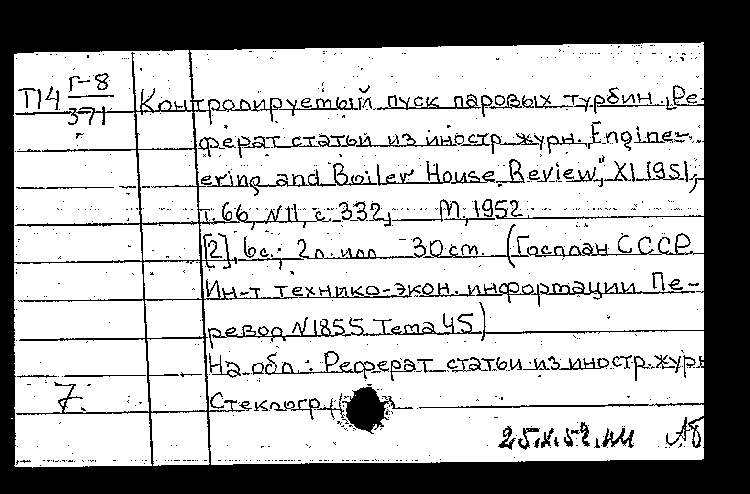 Т14 Г-8
371
Контролируемый пуск паровых турбин. „Ре-
ферат статьи из иностр. журн. „Engine-
ering and Boiler House Review", XI 1951,
т. 66, N11, с. 332, М, 1952
[2], 6с.; 2л. илл 30 ст. (Госплан СССР.
Ин-т технико-экон. информации. Пе-
ревод N1855 Тема 45)
На обл.: Реферат статьи из иностр. журн
7. Стеклогр.
25.X.52